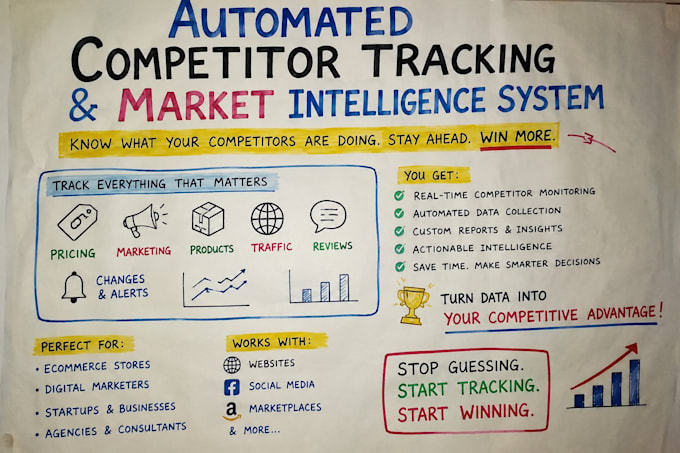 AUTOMATED
COMPETITOR TRACKING
& MARKET INTELLIGENCE SYSTEM
KNOW WHAT YOUR COMPETITORS ARE DOING. STAY AHEAD. WIN MORE.
TRACK EVERYTHING THAT MATTERS
PRICING
MARKETING
PRODUCTS
TRAFFIC
REVIEWS
CHANGES
& ALERTS
YOU GET:
REAL-TIME COMPETITOR MONITORING
AUTOMATED DATA COLLECTION
CUSTOM REPORTS & INSIGHTS
ACTIONABLE INTELLIGENCE
SAVE TIME. MAKE SMARTER DECISIONS
TURN DATA INTO
YOUR COMPETITIVE ADVANTAGE!
PERFECT FOR:
• ECOMMERCE STORES
• DIGITAL MARKETERS
• STARTUPS & BUSINESSES
• AGENCIES & CONSULTANTS
WORKS WITH:
WEBSITES
SOCIAL MEDIA
MARKETPLACES
& MORE...
STOP GUESSING.
START TRACKING.
START WINNING.